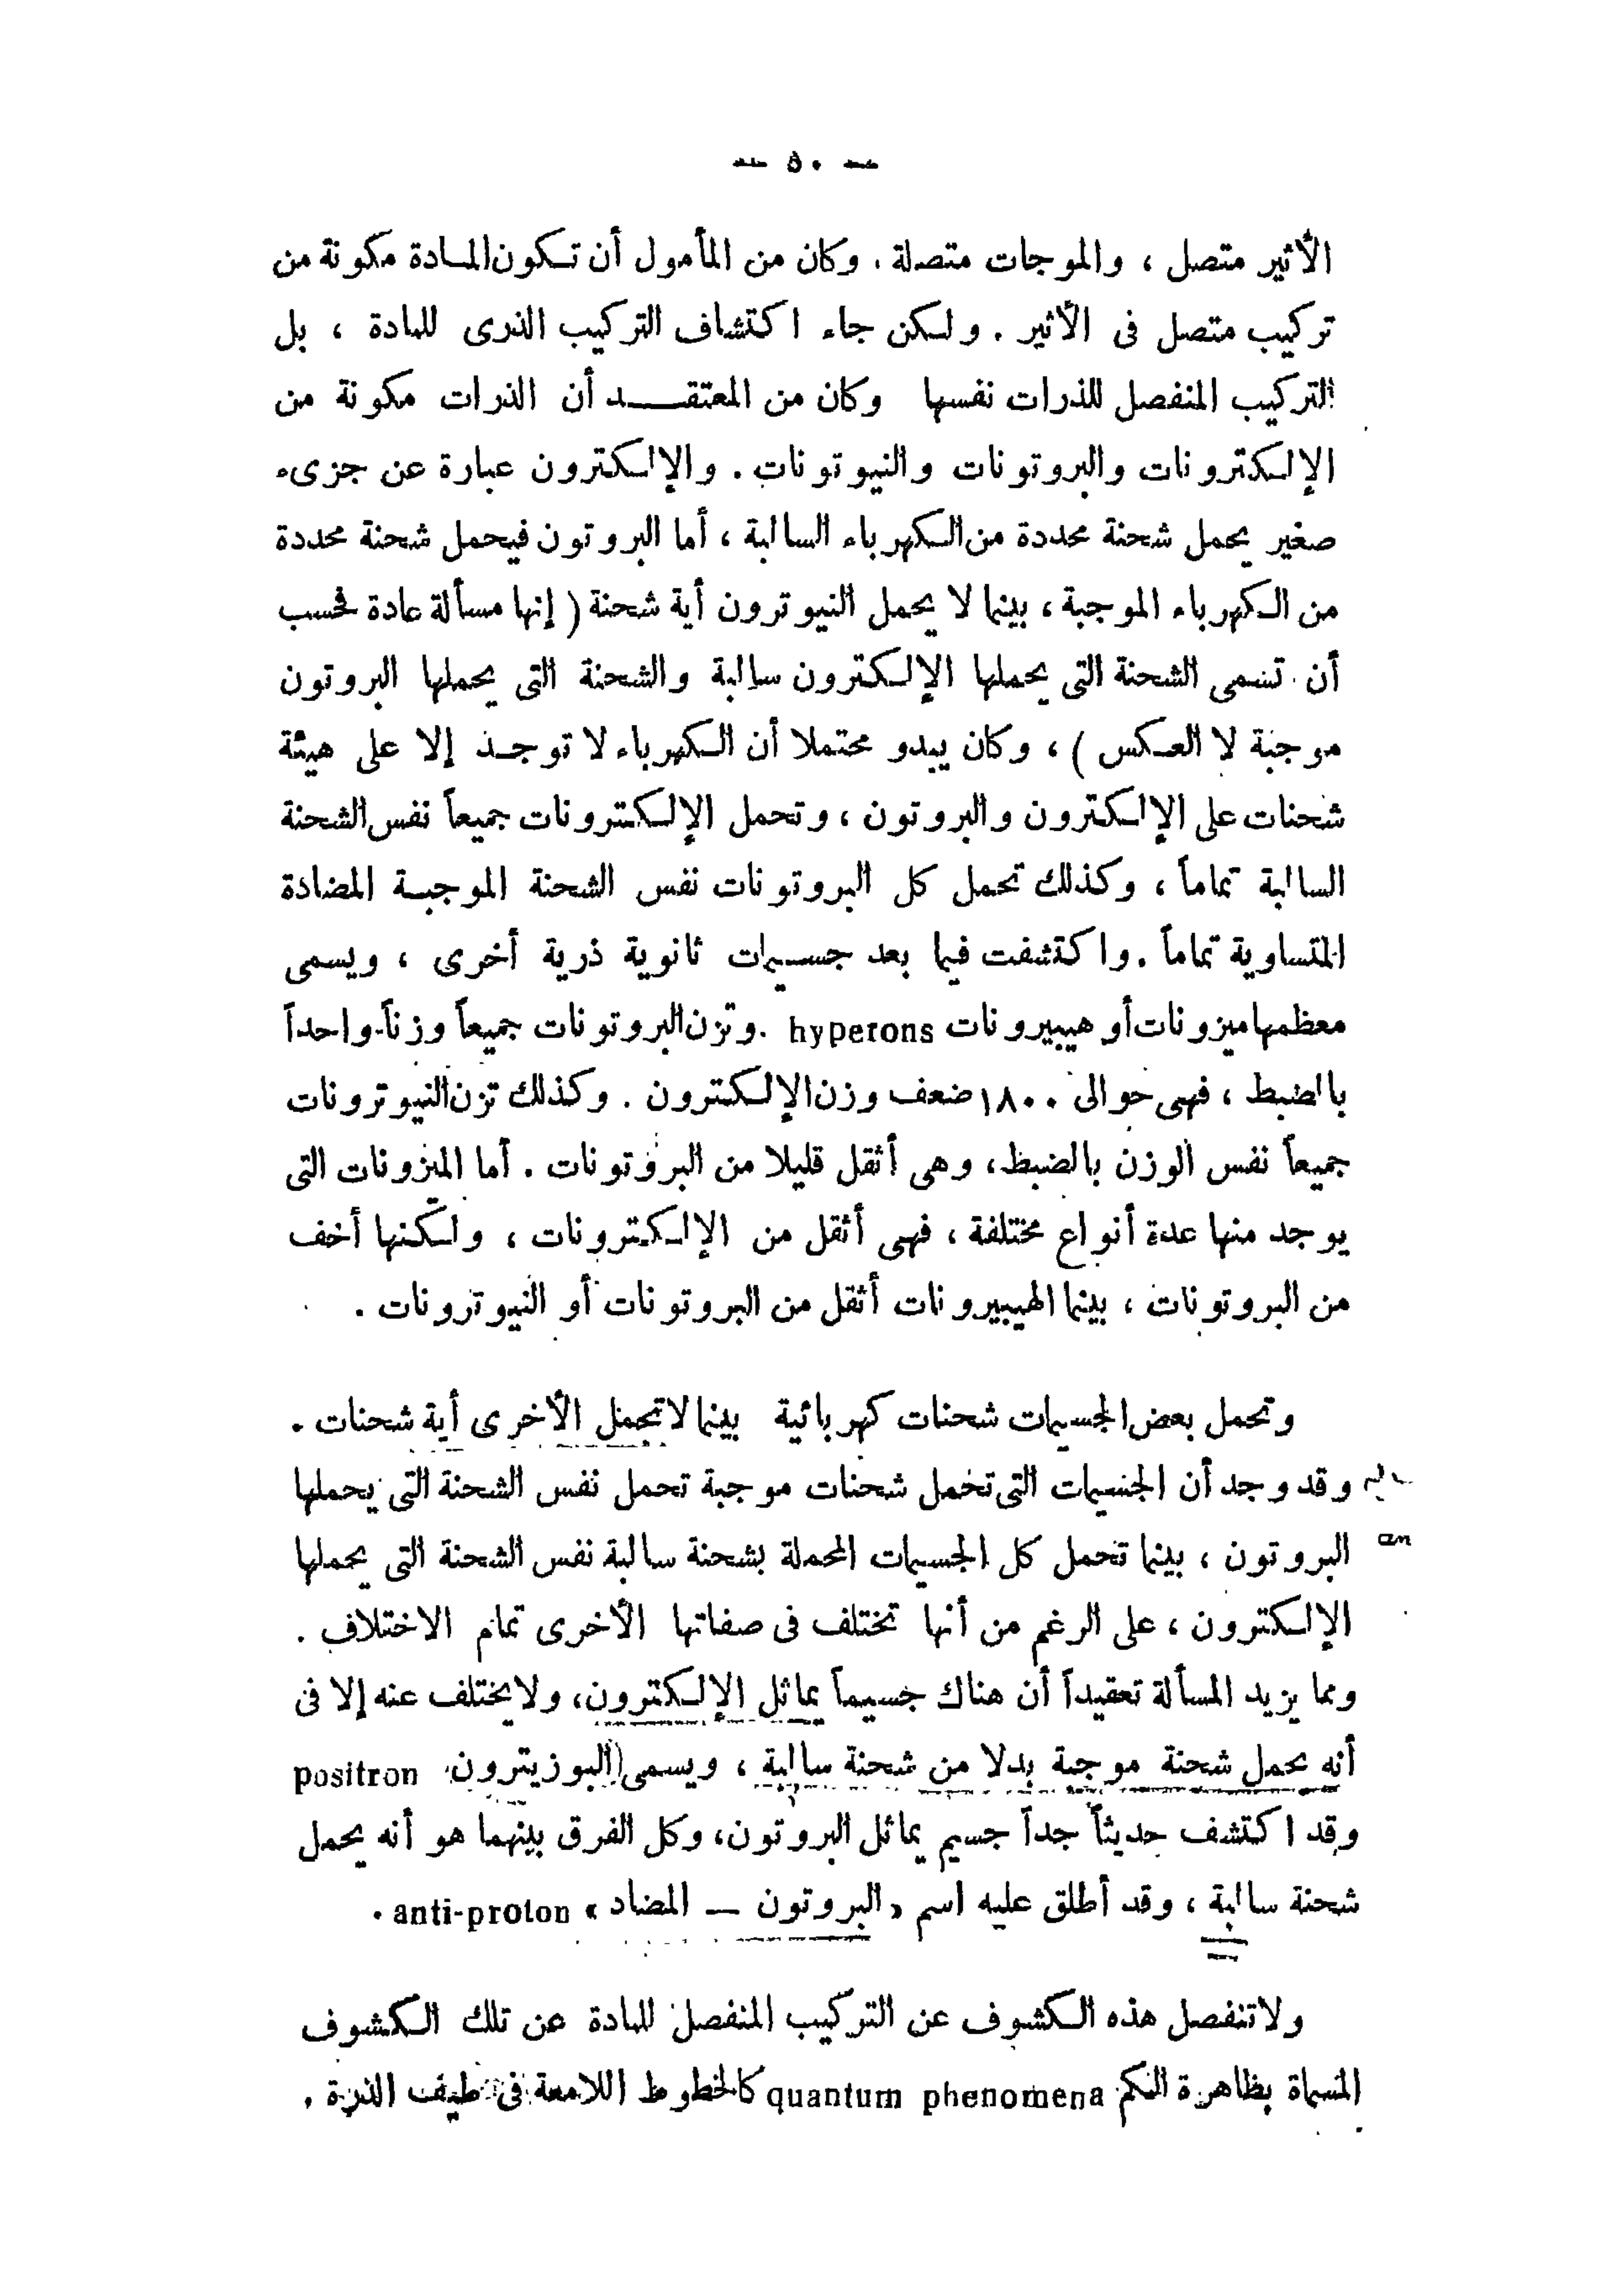 — ٥٠ —
الأثير متصل ، والموجات متصلة . وكان من المأمول أن تكون المادة مكونة من
تركيب متصل فى الأثير . ولكن جاء اكتشاف التركيب الذرى للمادة ، بل
التركيب المنفصل للذرات نفسها وكان من المعتقد أن الذرات مكونة من
الإلكترونات والبروتونات والنيوتونات . والإلكترون عبارة عن جزىء
صغير يحمل شحنة محددة من الكهرباء السالبة ، أما البروتون فيحمل شحنة محددة
من الكهرباء الموجبة ، بينما لا يحمل النيوترون أية شحنة ( إنها مسألة عادة فحسب
أن تسمى الشحنة التى يحملها الإلكترون سالبة والشحنة التى يحملها البروتون
موجبة لا العكس ) ، وكان يبدو محتملا أن الكهرباء لا توجد إلا على هيئة
شحنات على الإلكترون والبروتون ، وتحمل الإلكترونات جميعاً نفس الشحنة
السالبة تماماً ، وكذلك تحمل كل البروتونات نفس الشحنة الموجبة المضادة
المتساوية تماماً . واكتشفت فيما بعد جسيمات ثانوية ذرية أخرى ، ويسمى
معظمها ميزونات أو هيبيرونات hyperons . وتزن البروتونات جميعاً وزناً واحداً
بالضبط ، فهى حوالى ١٨٠٠ ضعف وزن الإلكترون . وكذلك تزن النيوترونات
جميعاً نفس الوزن بالضبط ، وهى أثقل قليلا من البروتونات . أما الميزونات التى
يوجد منها عدة أنواع مختلفة ، فهى أثقل من الإلكترونات ، ولكنها أخف
من البروتونات ، بينما الهيبيرونات أثقل من البروتونات أو النيوترونات .
وتحمل بعض الجسيمات شحنات كهربائية بينما لا تحمل الأخرى أية شحنات .
وقد وجد أن الجسيمات التى تحمل شحنات موجبة تحمل نفس الشحنة التى يحملها
البروتون ، بينما تحمل كل الجسيمات المحملة بشحنة سالبة نفس الشحنة التى يحملها
الإلكترون ، على الرغم من أنها تختلف فى صفاتها الأخرى تمام الاختلاف .
ومما يزيد المسألة تعقيداً أن هناك جسيماً يماثل الإلكترون ، ولا يختلف عنه إلا فى
أنه يحمل شحنة موجبة بدلا من شحنة سالبة ، ويسمى البوزيترون positron
وقد اكتشف حديثاً جداً جسيم يماثل البروتون ، وكل الفرق بينهما هو أنه يحمل
شحنة سالبة ، وقد أطلق عليه اسم « البروتون — المضاد » anti-proton .
ولا تنفصل هذه الكشوف عن التركيب المنفصل للمادة عن تلك الكشوف
المسماة بظاهرة الكم quantum phenomena كالخطوط اللامعة فى طيف الذرة .